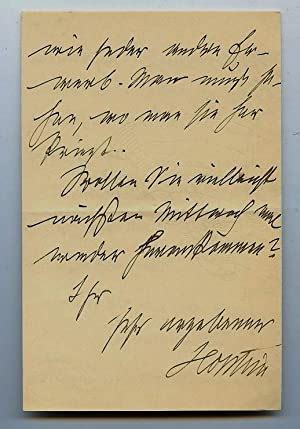 wie jeder andre Er-
werb. Man muß se-
hen, wo man sie her
kriegt..
Wollen Sie vielleicht
nächsten Mittwoch mal
wieder herauskommen?
Ihr
sehr ergebener